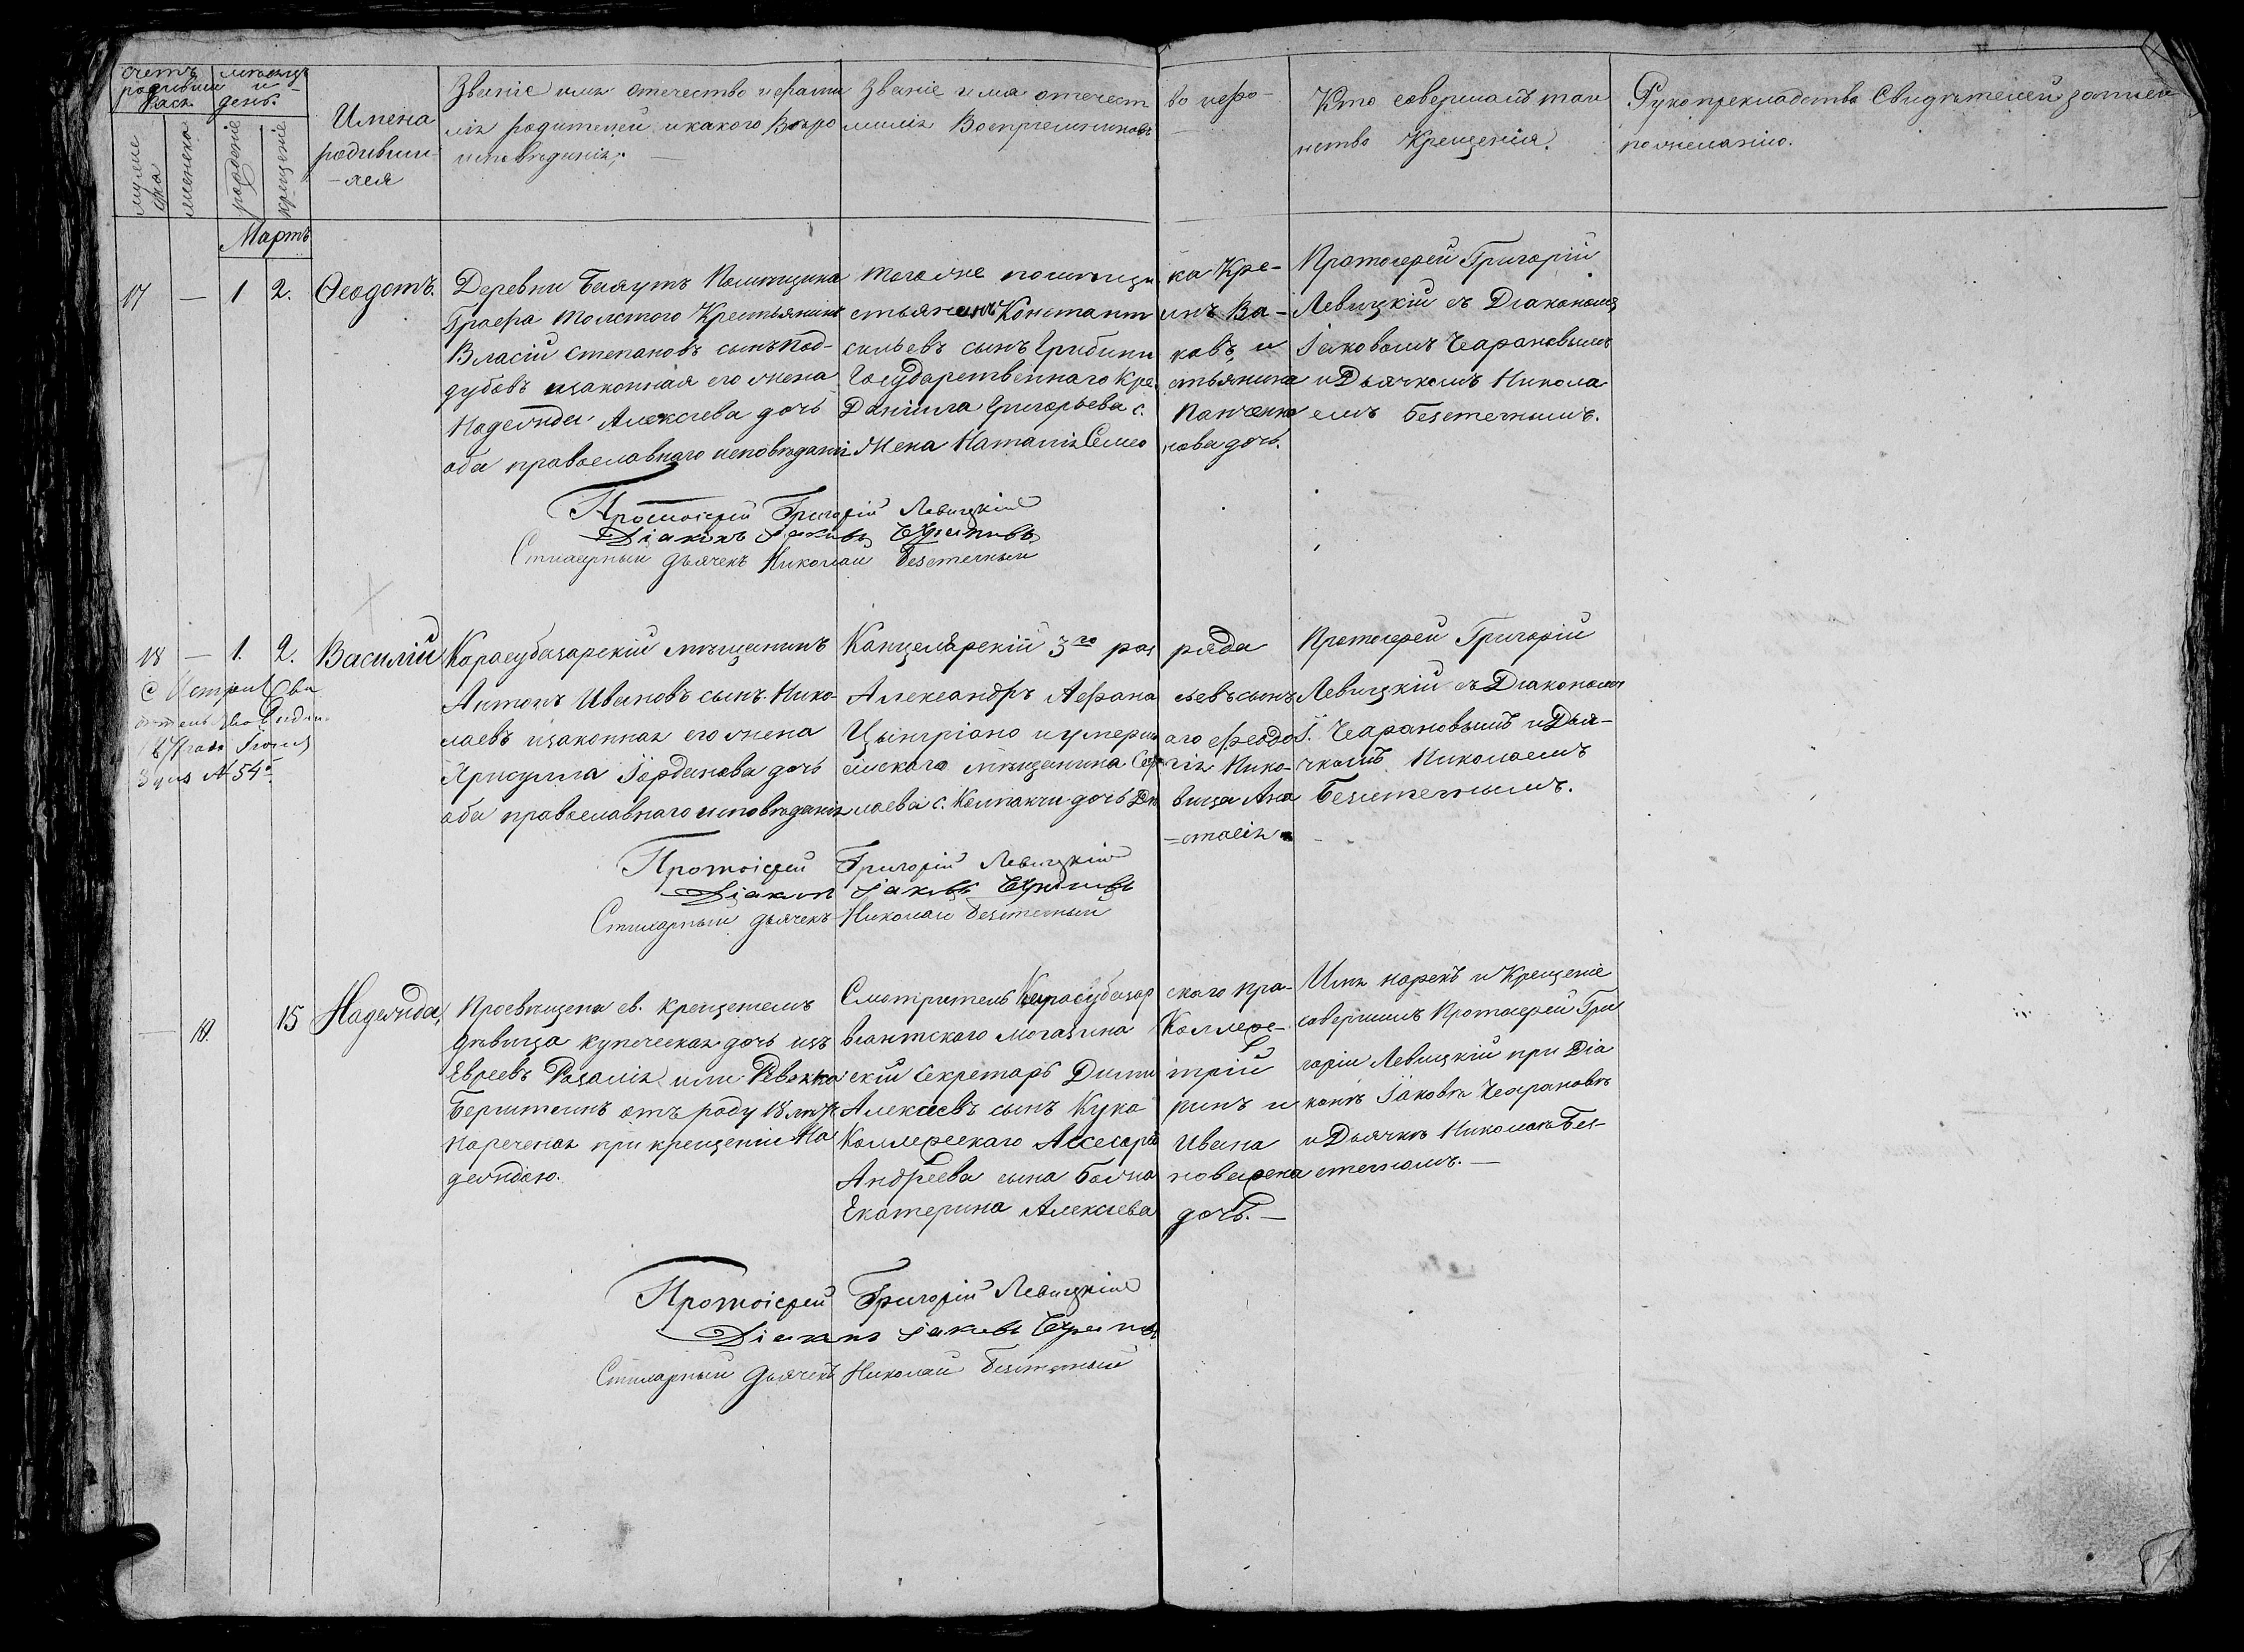 счетъ родивших
ся
мѣсяцъ и
день.
мужеска
женска
рожденіе
крещеніе
Имена
родивших
-ся
Званіе имя отечество и фами
лія родителей и какого Вѣро
исповѣданія.
Званіе имя отечест
во и фа-
милія Воспріемниковъ
Кто совершалъ таи
нство Крещенія.
Рукоприкладство Свидѣтелей записи
по желанію.
Мартъ
17 — 1 2. Ѳеодотъ.
Деревни Помѣщика
Графа Толстого Крестьянинъ
Власій Степановъ сынъ Под-
дубовъ и законная его жена
Надежда Алексіева дочь
оба православнаго исповѣданія
Того же помѣщи
ка Кре-
стьянинъ Константи
инъ Ва-
сильевъ сынъ Грибини
ковъ, и
Государственнаго Кре
стьянина
Даніила Григорьева с.
Панченко
Жена Наталія Симео
нова дочь.
Протоіерей Григорій
Левицкій съ Діакономъ
Іаковомъ Чеарановымъ
и Дьячкомъ Никола
емъ Безстечнымъ.
Протоіерей Григорій Левицкій
Діаконъ Іаковъ
Стихарный дьячекъ Николай
18 — 1. 2. Василій
№ 54.
Карасубазарскій мѣщанинъ
Антонъ Ивановъ сынъ Нико-
лаевъ и законная его жена
Іорданова дочь
оба православнаго исповѣданія
Канцелярскій 3го раз
ряда
Александръ Афана
сьевъ сынъ
и умерш
аго феодо
сійскаго мѣщанина
Нико-
лаева с. дочь Дѣ
вица Ана
=стасія
Протоіерей Григорій
Левицкій съ Діакономъ
І. Чеарановымъ и Дья-
чкомъ Николаемъ
Протоіерей Григорій Левицкій
Діаконъ Іаковъ
Стихарный дьячекъ Николай
— 15 Надежда,
Просвѣщена св. крещеніемъ
дѣвица купеческая дочь изъ
Евреевъ Розалія или Ревекка
отъ роду 18 лѣтъ
нареченая при крещеніи На
деждою.
Смотритель Карасубазар
скаго про-
віантскаго Магазина
Коллеж-
скій Секретарь Дими
трій
Алексіевъ сынъ Кука
ринъ и
Коллежскаго Ассесора
Ивана
Андреева сына Бажа
нова жена
Екатерина Алексіева
дочь.—
Имя нарекъ и Крещеніе
совершилъ Протоіерей Гри
горій Левицкій при Діа
конѣ Іаковѣ Чеарановѣ
и Дьячкѣ Николаѣ Без-
стечномъ.—
Протоіерей Григорій Левицкій
Діаконъ Іаковъ
Стихарный Дьячекъ Николай